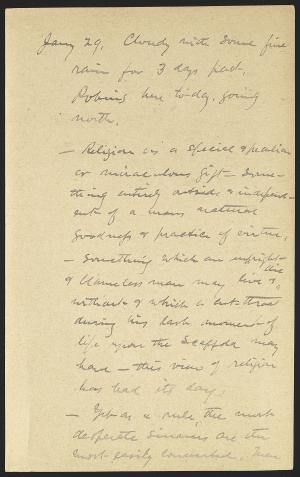 Jany 29. Cloudy with some fine
rain for 3 days past.
Robins here to-day, going
north.
— Religion is a special & peculiar
or miraculous gift – some-
thing entirely outside & independ-
ent of a mans natural
goodness & practice of virtue.
— Something which an upright
& blameless man may live & die
without & which a cut throat
during his last moment of
life upon the Scaffold may
have – this view of religion
has had its day.
— Yet as a rule, the most
desperate sinners are the
most easily converted. Men